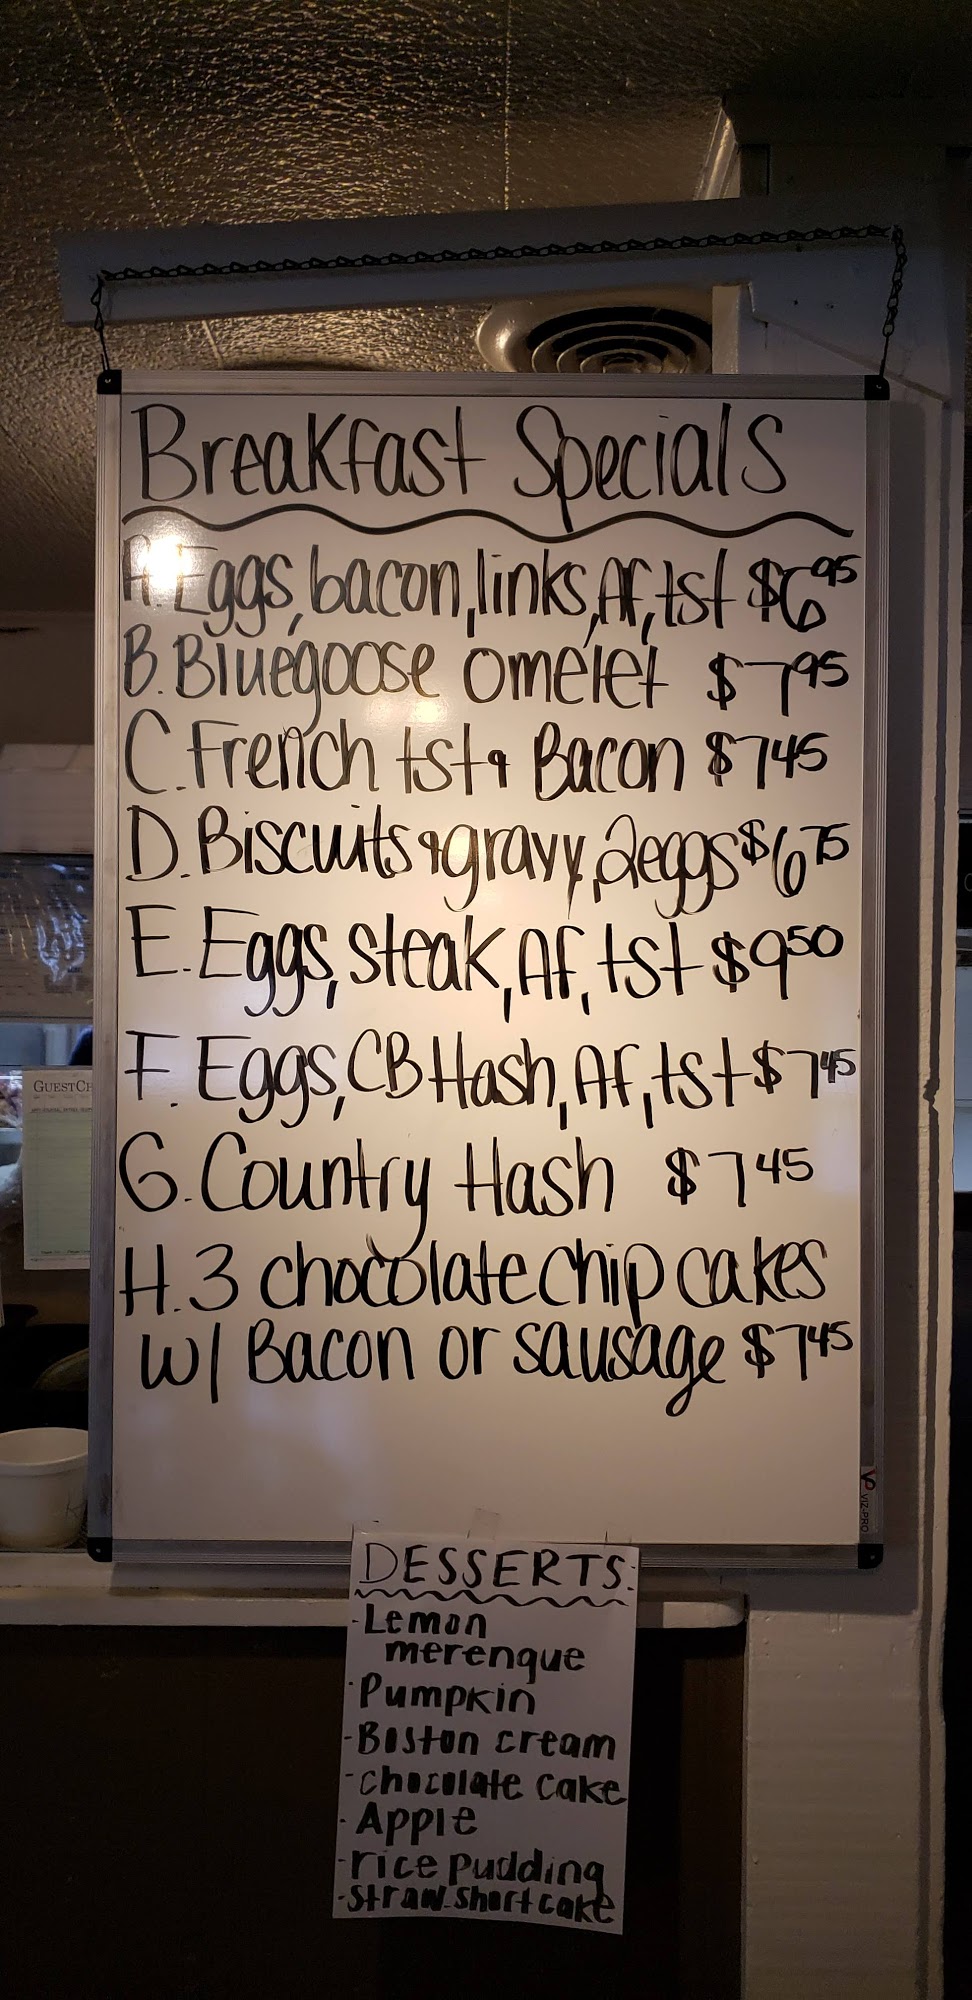 Breakfast Specials
A. Eggs, bacon, links, AF, tst $6.95
B. Bluegoose omelet $7.95
C. French tst & Bacon $7.45
D. Biscuits & gravy, 2eggs $6.75
E. Eggs, steak, AF, tst $9.50
F. Eggs, CB Hash, AF, tst $7.45
G. Country Hash $7.45
H. 3 chocolate chip cakes
w/ Bacon or sausage $7.45
GUEST
VIZ-PRO
DESSERTS:
-Lemon
merengue
-Pumpkin
-Boston cream
-chocolate cake
-Apple
-rice pudding
-straw. short cake